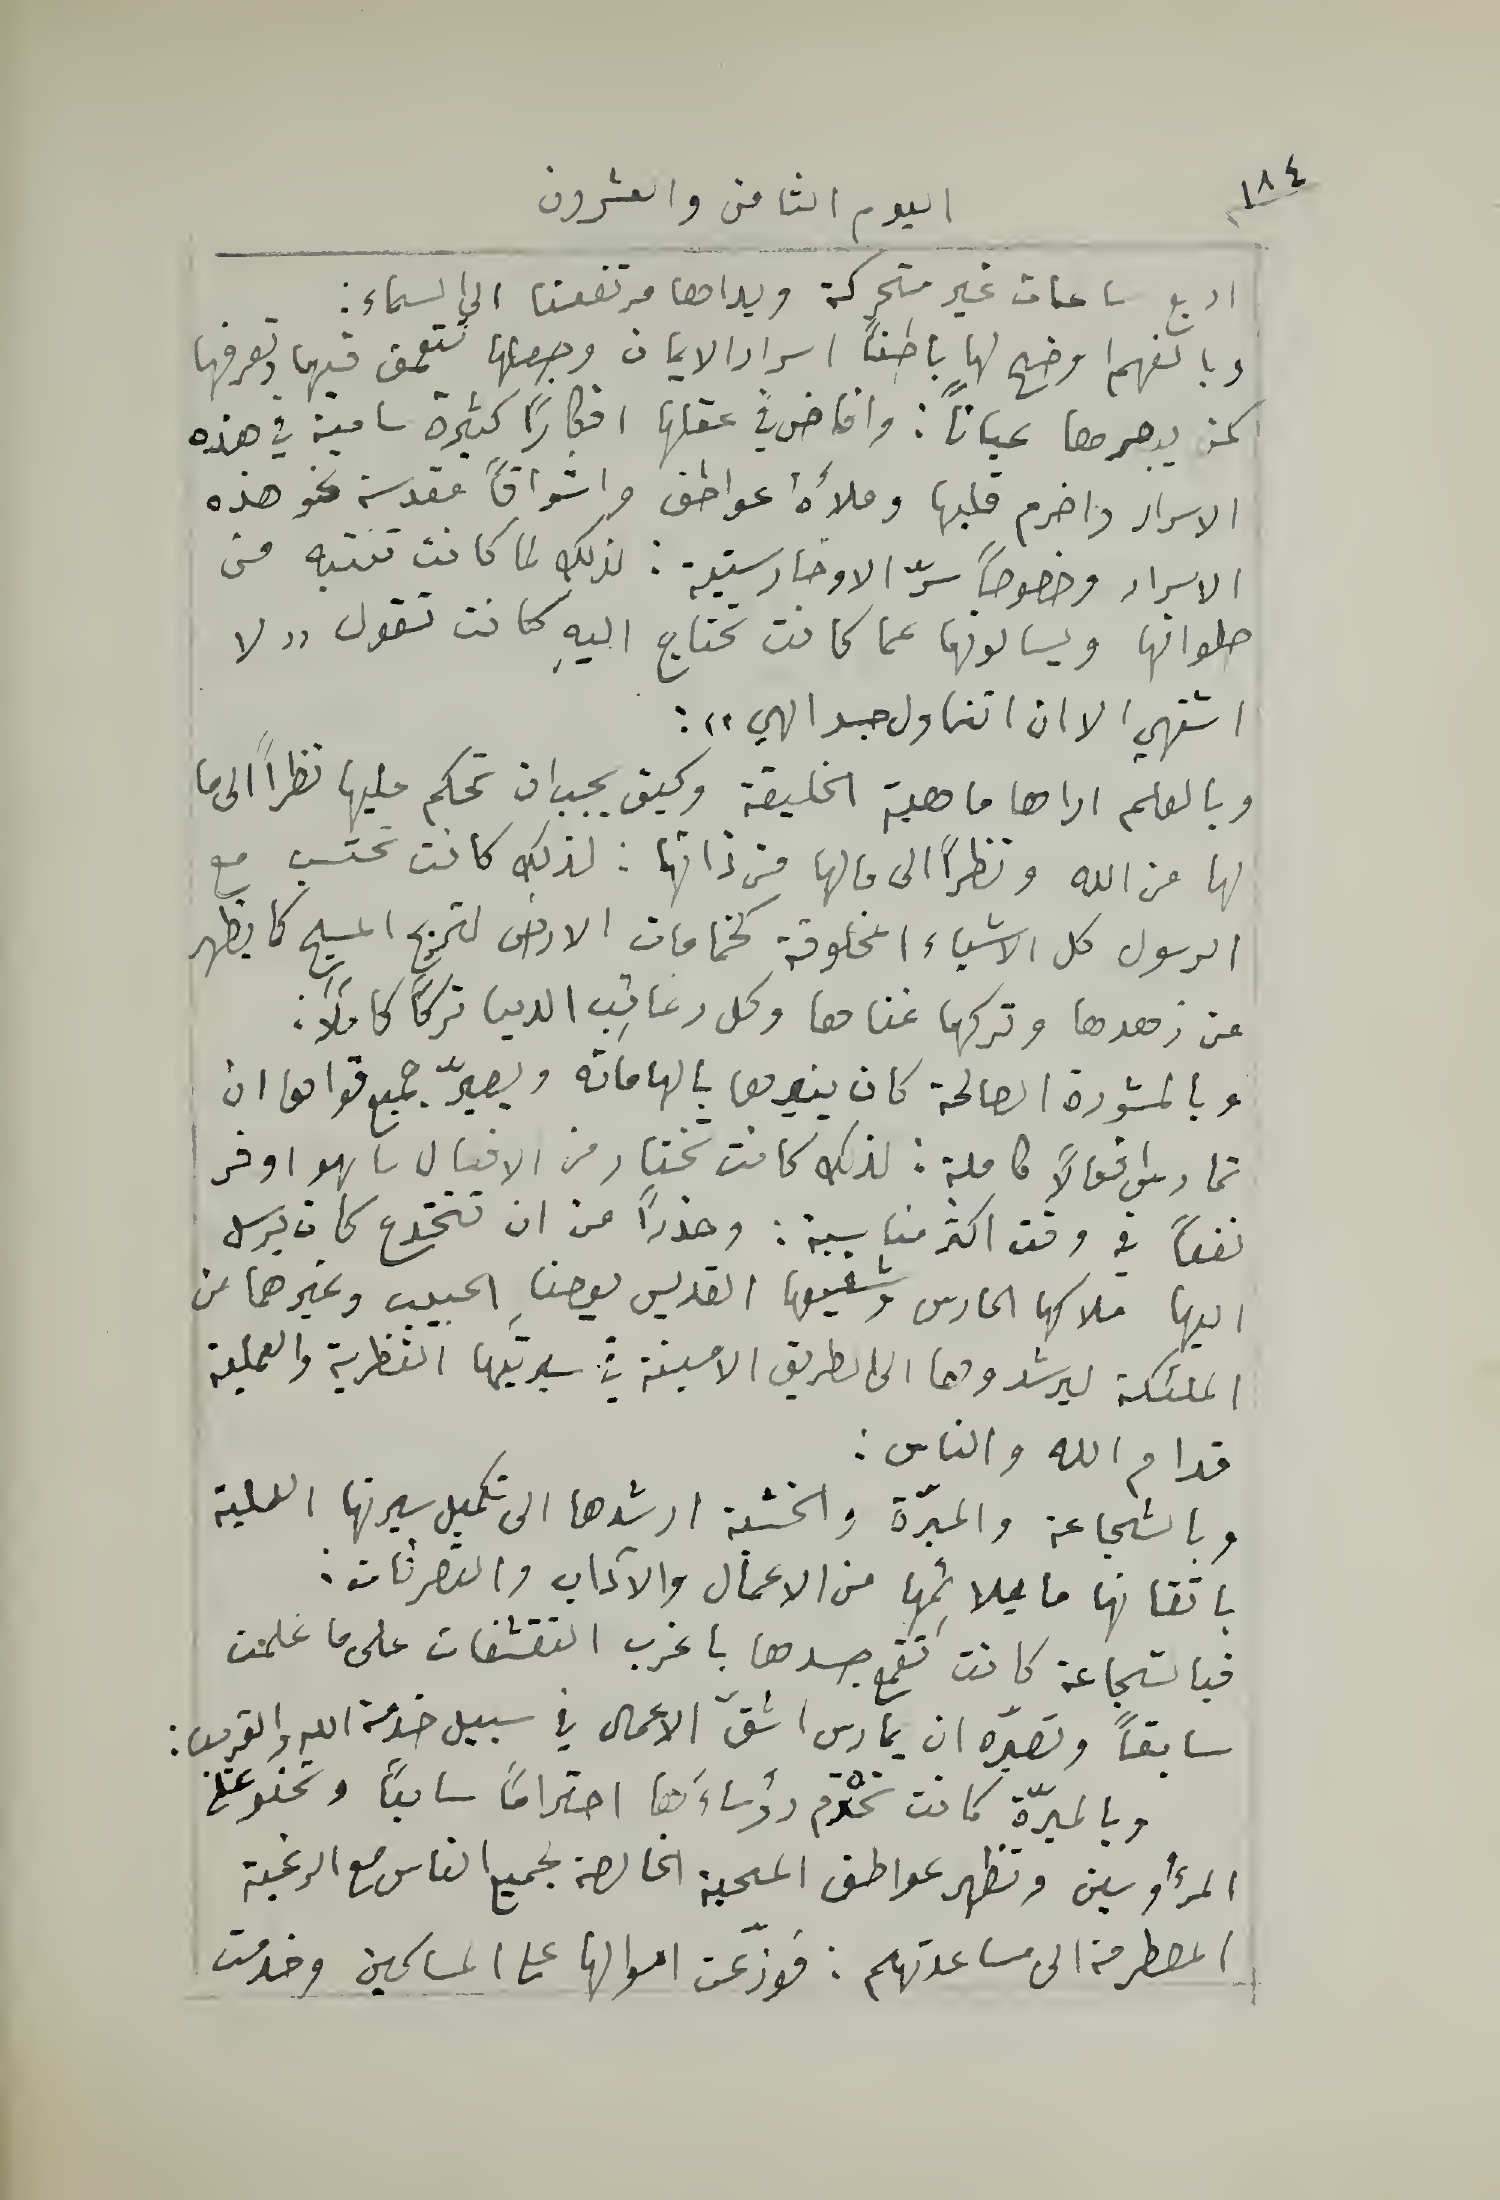 ١٨٤
اليوم الثامن والعشرون
اربع ساعات غير متحركة ويداها مرتفعتا الى السماء :
وبالفهم اوضح لها باطناً اسرار الايمان وجعلها تتعمق فيها وتعرفها
كمن يبصرها عياناً : وافاض في عقلها افكارًا كثيرة سامية في هذه
الاسرار واضرم قلبها وملأهُ عواطف واشواقاً مقدسة نحو هذه
الاسرار وخصوصاً سرّ الاوخارستية : لذلك لما كانت تنتبه من
صلواتها ويسالونها عما كانت تحتاج اليهِ كانت تقول ,, لا
اشتهي الا ان اتناول جسد الهي ،، :
وبالعلم اراها ماهية الخليقة وكيف يجب ان تحكم عليها نظراً الى ما
لها من الله ونظراً الى مالها من ذاتها : لذلك كانت تحتسب مع
الرسول كل الاشياء المخلوقة كخمامات الارض لتربح المسيح كما يظهر
من زهدها وتركها غناها وكل رغائب الدنيا تركًا كاملًا :
وبالمشورة الصالحة كان ينيرها بالهاماته ويصيّر جميع قواها ان
تمارس افعالًا كاملة : لذلك كانت تختار من الافعال ما هو اوفر
نفعاً في وقت اكثر مناسبة : وحذراً من ان تنخدع كان يرسل
اليها ملاكها الحارس وشفيعها القديس يوحنا الحبيب وغيرهما من
الملئكة ليرشدوها الى الطريق الامينة في سيرتيها النظرية والعملية
قدام الله والناس :
وبالشجاعة والمبرّة والخشية ارشدها الى تكميل سيرتها العملية
باتقانها ما يلائمها من الاعمال والآداب والتصرفات :
فبالشجاعة كانت تقمع جسدها باغرب التقشفات على ما علمت
سابقاً وتصيّره ان يمارس اشقّ الاعمال في سبيل خدمة الله والقريب :
وبالمبرّة كانت تحترم رؤساءَها احترامًا سامياً وتحنو على
المرؤوسين وتظهر عواطف المحبة الخالصة لجميع الناس مع الرغبة
المضطرمة الى مساعدتهم : فوزّعت اموالها على المساكين وخدمت